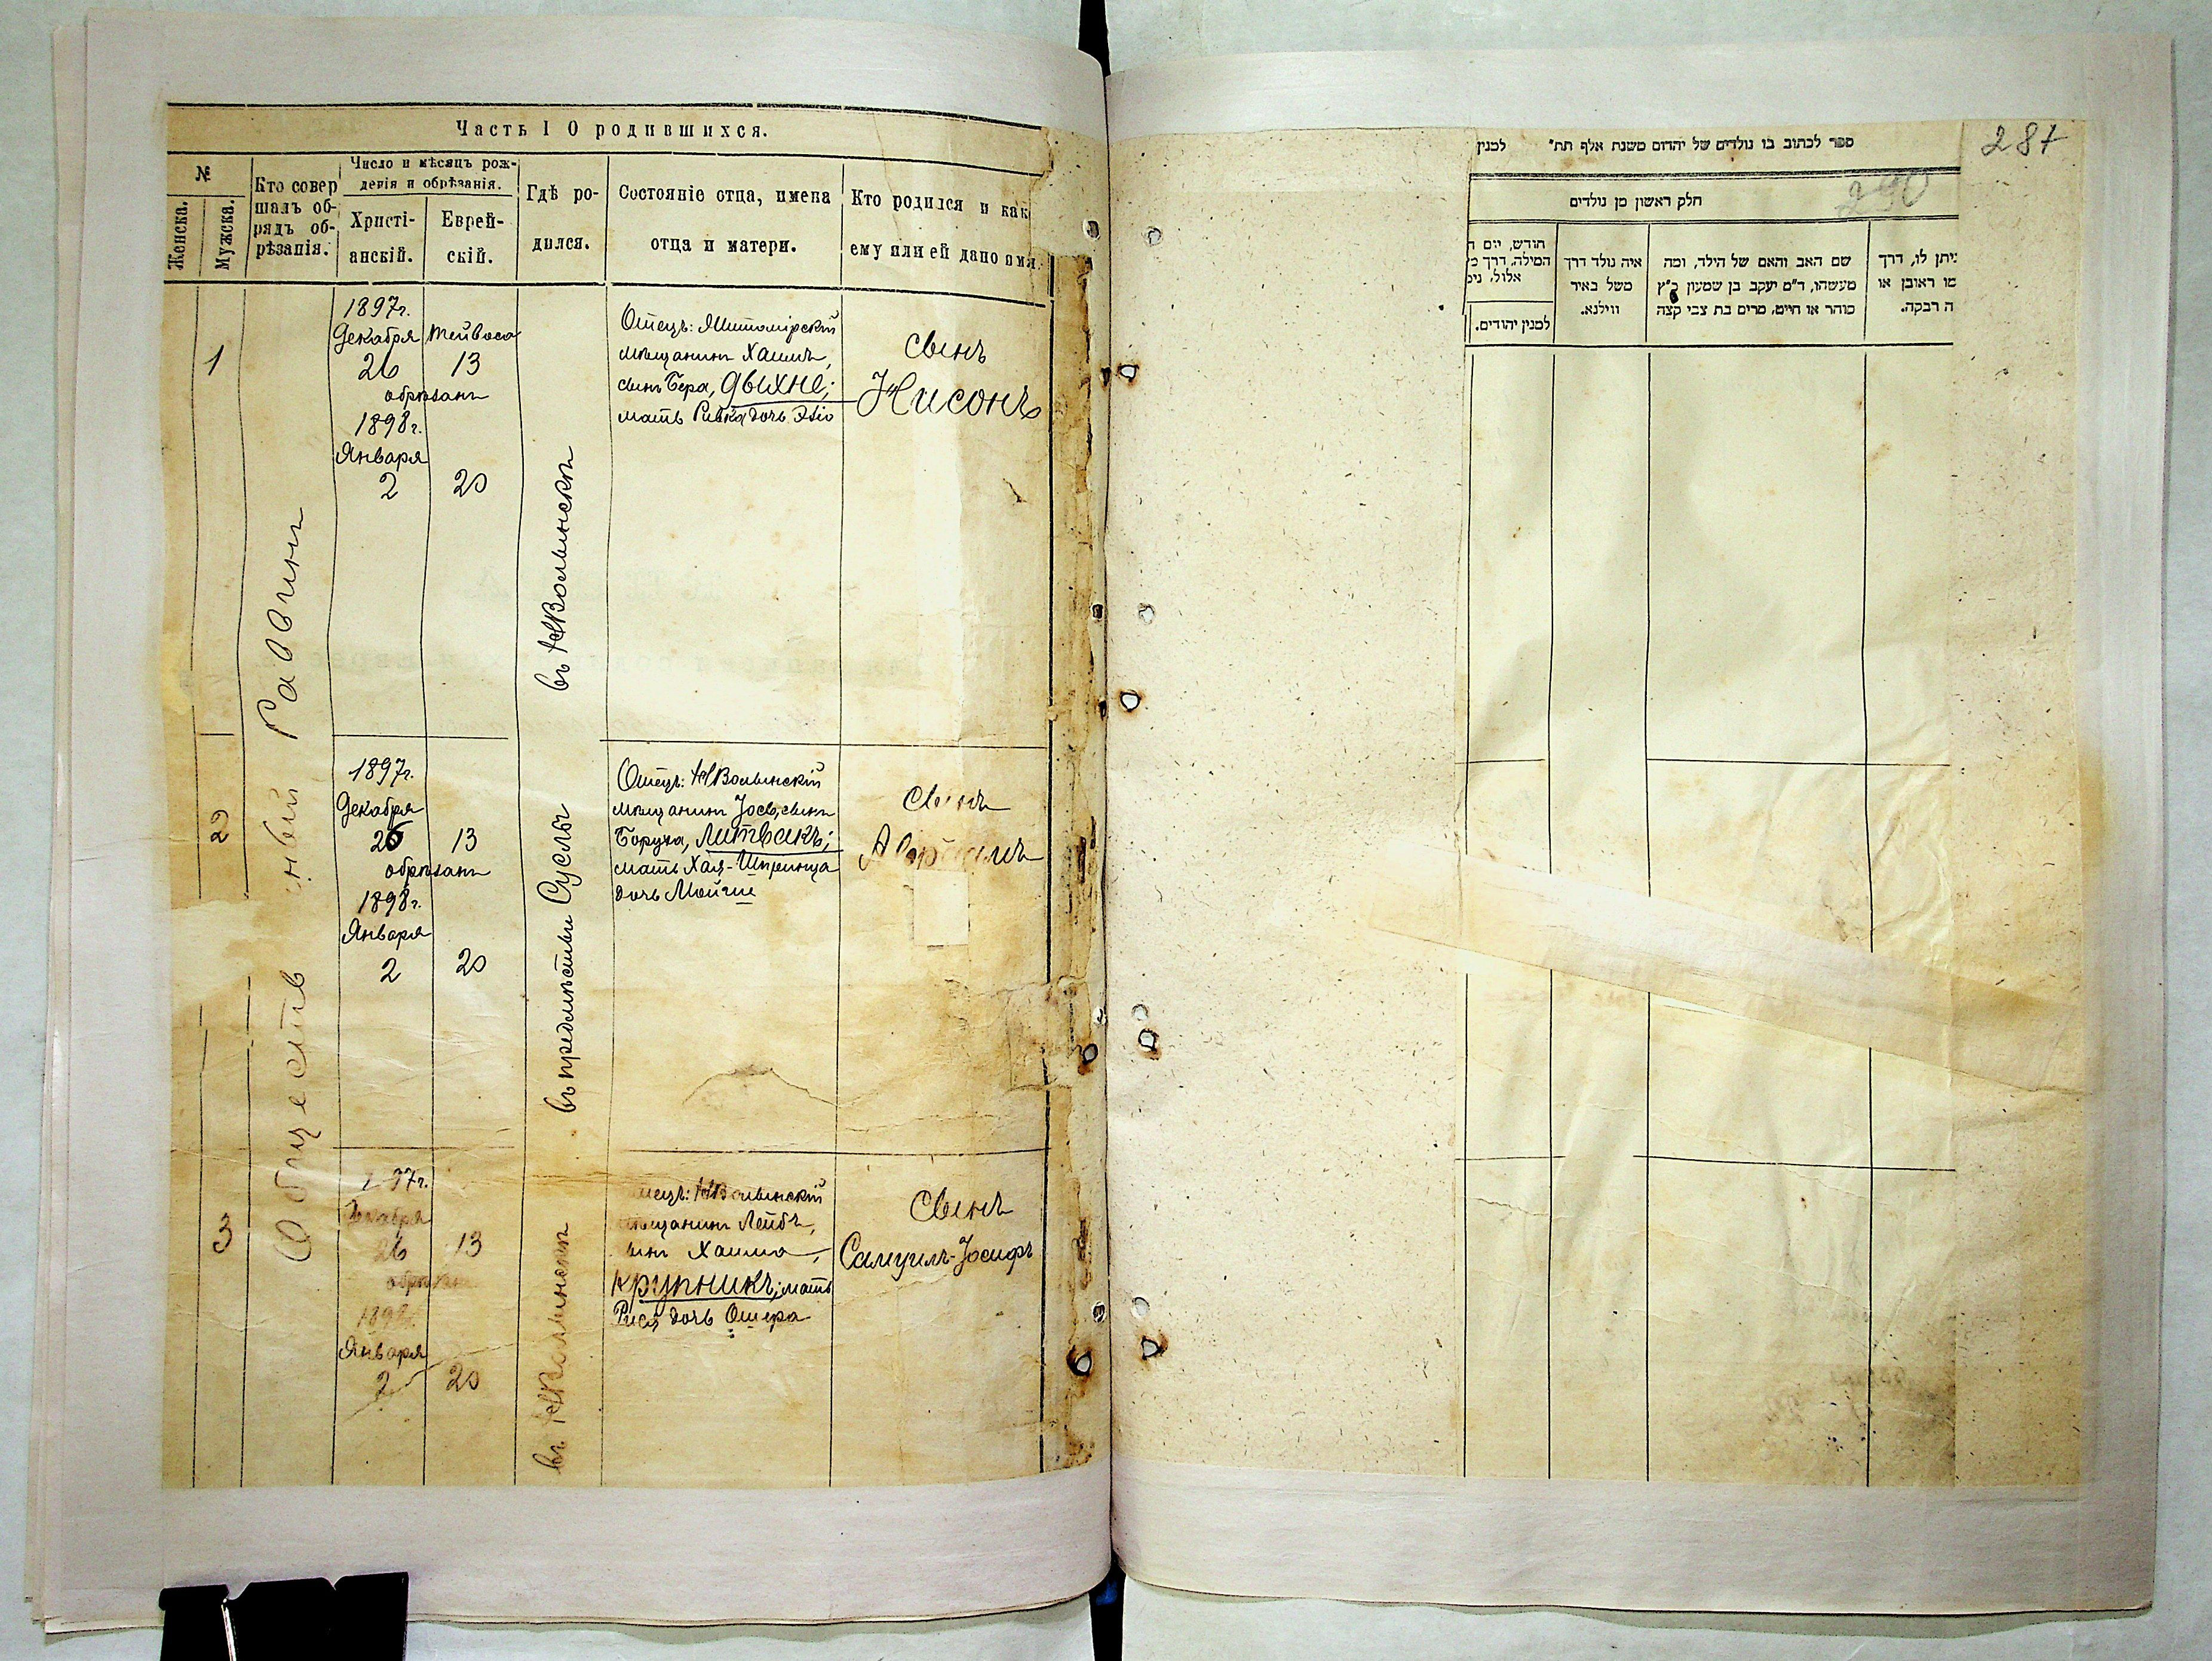 Часть I О родившихся.
№
Женска.
Мужска.
Кто совер
шалъ об-
рядъ об-
рѣзанія.
Число и мѣсяцъ рож-
денія и обрѣзанія.
Христі-
анскій.
Еврей-
скій.
Гдѣ ро-
дился.
Состояніе отца, имена
отца и матери.
Кто родился и как
ему или ей дано имя.
Общественный Раввинъ
1
1897г.
Декабря Тейвеса
26 13
обрѣзанъ
1898г.
Января
2 20
въ НВолынскѣ
Отецъ: Житомірскій
мѣщанинъ Хаимъ,
сынъ Бера, Двихне;
мать Ривка дочь
сынъ
Нисонъ
2
1897г.
Декабря
26 13
обрѣзанъ
1898г.
Января
2 20
въ предмѣстьи Суслы
Отецъ: НВолынскій
мѣщанинъ Іосъ, сынъ
Боруха, Литвакъ;
мать Хая-Шпринца
дочь Мойше
сынъ
Авраамъ
3
97г.
Декабря
26 13
обрѣзанъ
1898г.
Января
2 20
въ НВолынскѣ
Отецъ: НВолынскій
мѣщанинъ Лейбъ,
сынъ Хаима,
Крупникъ; мать
Рися дочь Ошера
сынъ
Самуилъ-Іосифъ
287
290
ספר לכתוב בו נולדים של יהדום משנת אלף תת" למנין
חלק ראשון מן נולדים
חודש, יום ה
המילה, דרך מ
אלול, ניס
למנין יהודים.
איה נולד דרך
משל באיר
ווילנא.
שם האב והאם של הילד, ומה
מעשהו, ד"מ יעקב בן שמעון כ"ץ
סוהר או חיים, מרים בת צבי קצה
ניתן לו, דרך
מו ראובן או
ה רבקה.